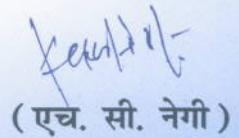 ( एच. सी. नेगी )